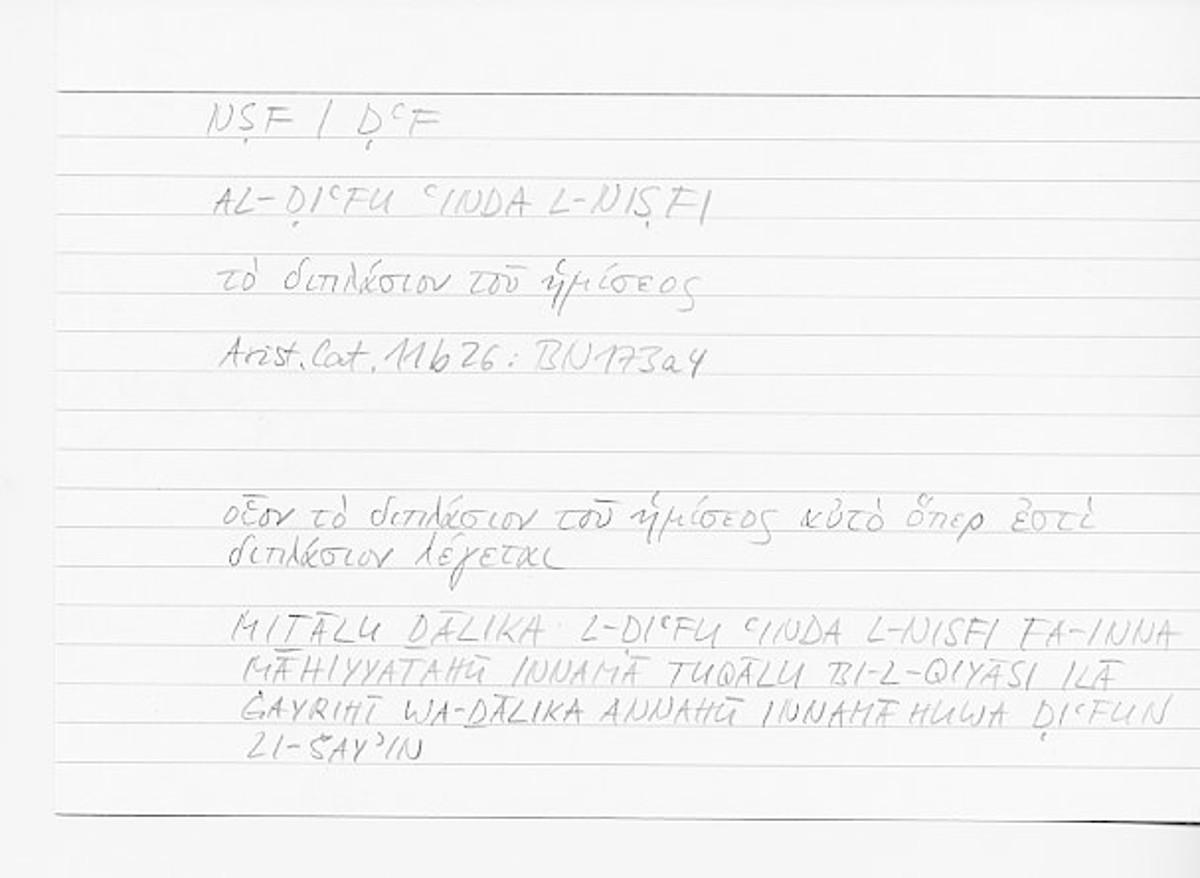 NṢF / ḌʿF
AL-ḌIʿFU ʿINDA L-NIṢFI
τὸ διπλάσιον τοῦ ἡμίσεος
Arist. Cat. 11b26: BN173a4
οἷον τὸ διπλάσιον τοῦ ἡμίσεος αὐτὸ ὅπερ ἐστὶ
διπλάσιον λέγεται
MIṮĀLU ḎĀLIKA L-ḌIʿFU ʿINDA L-NISFI FA-INNA
MĀHIYYATAHŪ INNAMĀ TUQĀLU BI-L-QIYĀSI ILĀ
ĠAYRIHĪ WA-ḎĀLIKA ANNAHŪ INNAMĀ HUWA ḌIʿFUN
LI-ŠAYʾIN